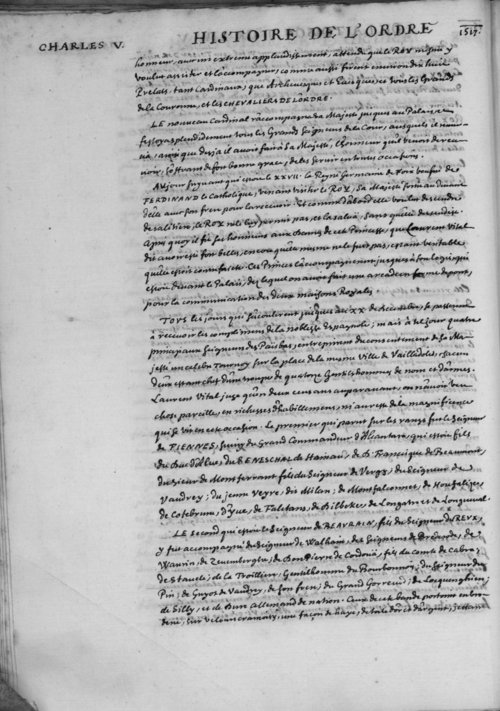 CHARLES V. HISTOIRE DE L'ORDRE 1517.
honneur, avec un extreme applaudissement, attendu que le ROY mesme y
voulut assister et l'accompagner, comme aussi firent environ dix huit
Prelats, tant Cardinaux, que Archevesques et Evesques et tous les Grands
de la Couronne, et les CHEVALIERS DE L'ORDRE.
LE nouveau Cardinal raccompagna sa Majesté jusques au Palais, en
festoya splendidement tous les Grands Seigneurs de la Cour, ausquels il
ainsi que desja il avoit fait à Sa Majesté, l'honneur qu'il venoit de
noir, s'offrant de fort bonne grace, de les servir en toutes occasions.
AU jour suyvant qui estoit le XXVII. la Reyne Germaine de Foix veufve de
FERDINAND le Catholique, vint visiter le ROY, Sa Majesté
d'elle avec son frere pour la recevoir. Et comme d'abord elle voulut descendre
de sa litiere, le ROY ne le luy permit pas, et la salüa, sans qu'elle descendit.
Apres quoy il fit ses honneurs aux Dames de cette Princesse, que Laurent Vital
dit avoir esté fort belles, encore qu'elle mesme ne le fut pas,
qu'elle estoit Ces Princes l'accompagnerent jusques à son logis qui
estoit devant le Palais, duquel on avoit fait une arcade en forme de pont,
pour la communication des deux maisons Royales.
TOUS les jours qui s'ecoulerent jusques au XX de Decembre, se passerent
à recevoir les complimens de la noblesse d'Espagne; mais à tel jour quatre
principaux Seigneurs des Paisbas, entreprirent du consentement de Sa Ma-
jesté un celebre Tournoy sur la place de la mesme Ville de Vailledolit, chacun
d'eux estant chef d'une troupe de quatorze Gentilshommes de nom et d'armes.
Laurent Vital juge qu'en deux cens ans auparavant, on n'avoit veu
chose pareille, en richesses d'habillemens, ni au reste de la magnificence
qui se vit en cette occasion. Le premier qui parut sur les rangs fut le Seigneur
de FIENNES, suivy du Grand Commandeur d'Alcantara, qui estoit fils
du Duc d'Albe, du SENESCHAL de Hainau, de D. Francisque de Beaumont,
du Sieur de Montferrant fils du Seigneur de Vergy, du Seigneur de
Vaudrey; du jeune Veyre, dit Milan; de Montfalconnet, de Houfalize,
de Cotebrune, d'Yve, de Faletans, de Bilbeke, de Longastre et de Longueval.
LE second qui estoit le Seigneur de BEAURAIN, fils du Seigneur du REUX,
y fut accompagné du Seigneur de Walhain, des Seigneurs de Brederode, de
Waurin, de Zevemberghe, de Don Pierre de Cordoüa, fils du comte de Cabra,
de Stavele, de la Trolliere, Gentilhomme du Bourbonnois, du Seigneur du
Pin; de Guyot de Vaudrey, de son frere; du Grand Gorreud; de Locquenghien;
de Silly, et de Dure Allemand de nation. Ceux de cete bande portoient en bro-
derie, sur velours cramoisy, une façon de haye, de toile d'or et d'argent,